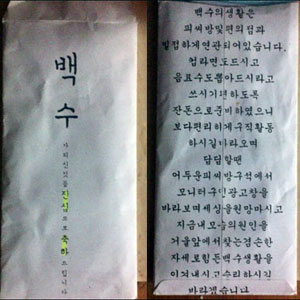 백수
자의신있음을
진심으로축하드립니다
백수의생활은
피씨방및편의점과
밀접하게연관되어있습니다.
컵라면도드시고
음료수도뽑아드시라고
쓰시기편하도록
잔돈으로준비하였으니
보다편리하게구직활동
하시길바라오며
답답할땐
어두운피씨방구석에서
모니터구인광고창을
바라보며세상을원망마시고
지금내모습의원인을
거울앞에서찾는겸손한
자세로힘든백수생활을
이겨내시고승리하시길
바라겠습니다